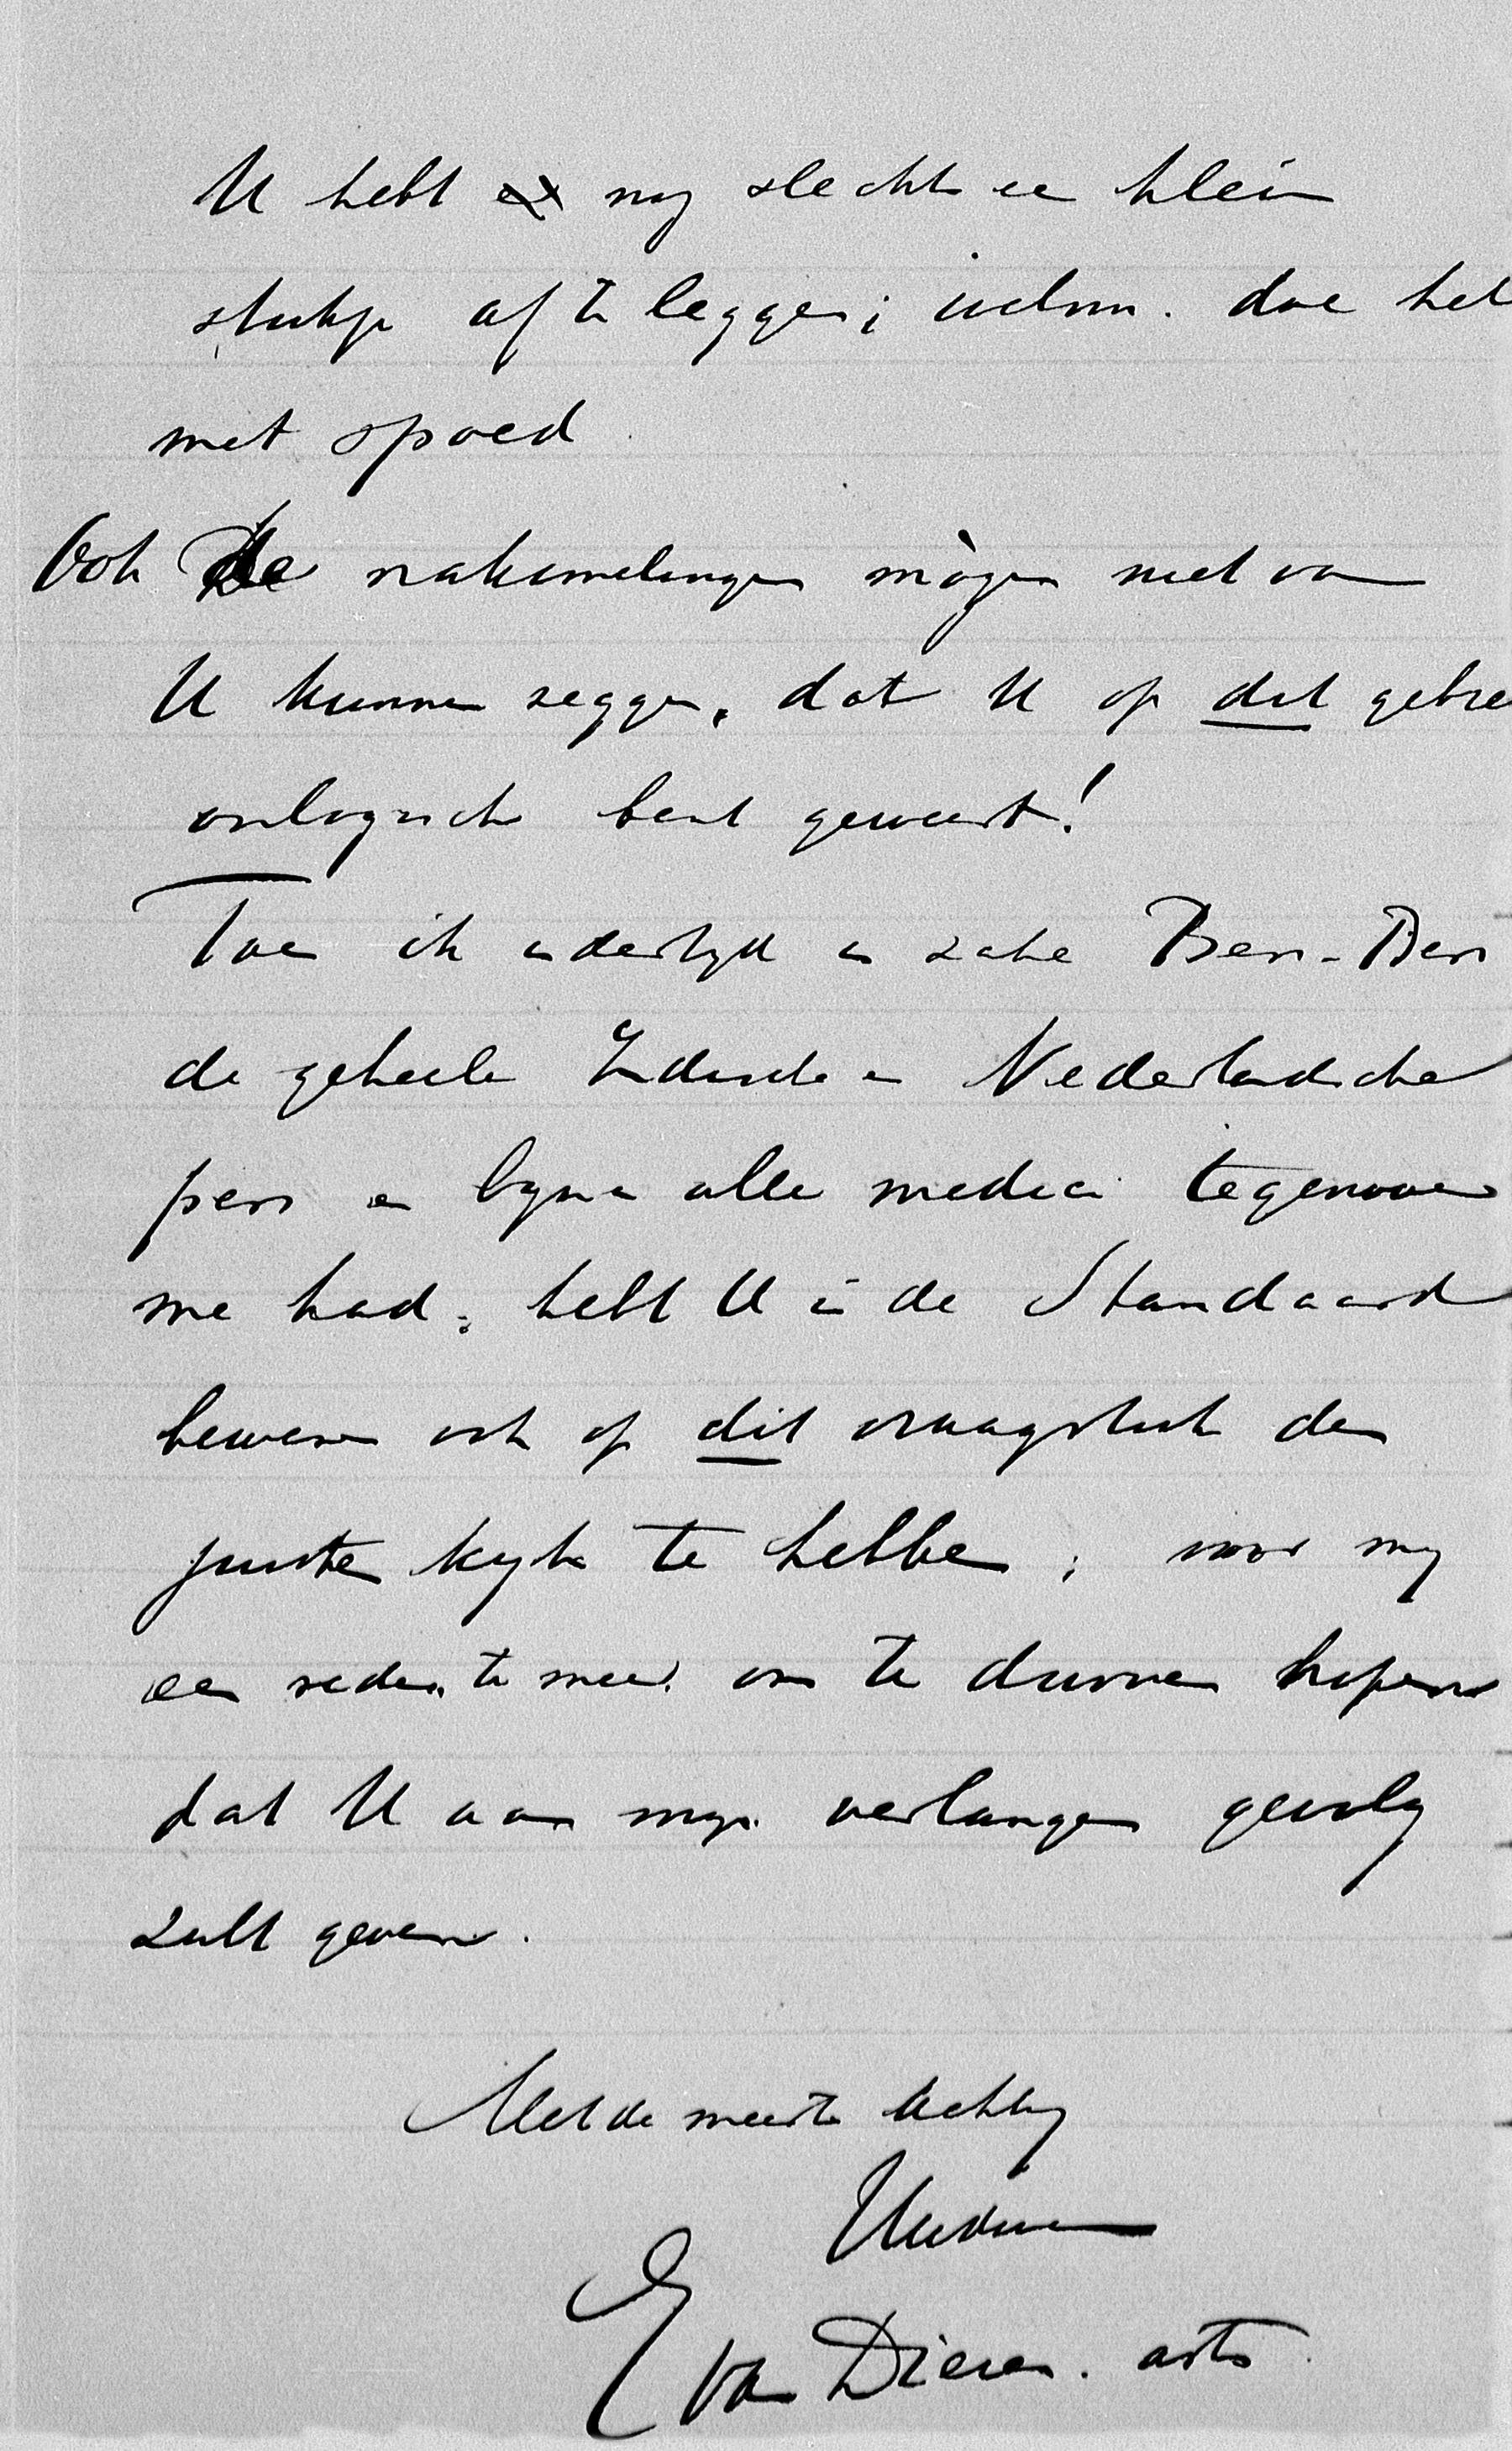 U hebt nog slechts een klein
stukje af te leggen; doe het
met spoed
Ook de nakomelingen mògen niet van
U kunnen zeggen, dat U op dit gebied
onlogisch bent geweest!
Toen ik indertijd in zake Beri-Beri
de geheele Indische en Nederlandsche
pers en bijna alle medici tegenover
me had, hebt U in de Standaard
bewezen ook op dit vraagstuk den
juisten kijk te hebben; voor mij
een reden te meer om te durven hopen
dat U aan mijn verlangen gevolg
zult geven.
Met de meeste Achting
Uwdw
E van Dieren. arts